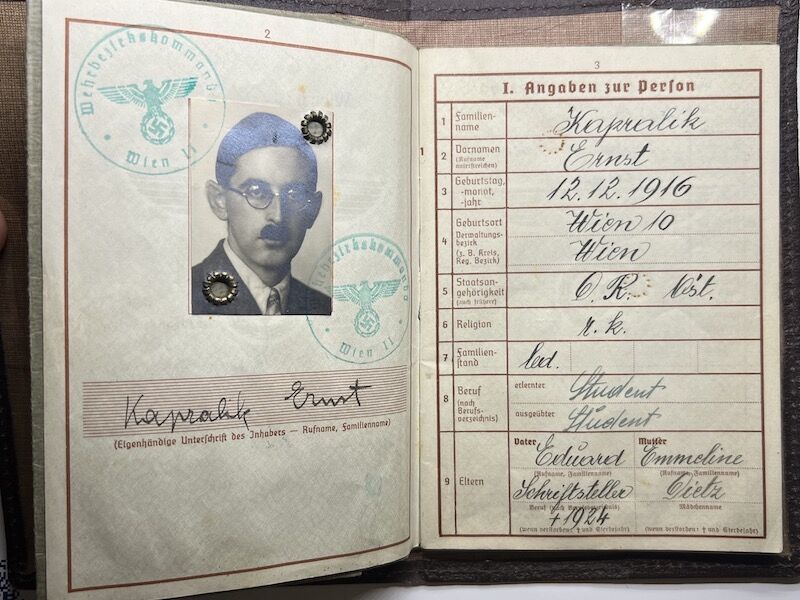 2
Wehrbezirkskommando
Wien II
Wehrbezirkskommando
Wien II
Kapralik Ernst
(Eigenhändige Unterschrift des Inhabers — Rufname, Familienname)
3
I. Angaben zur Person
1 Familien-
name
Kapralik
2 Vornamen
(Rufname
unterstreichen)
Ernst
3 Geburtstag,
-monat,
-jahr
12.12.1916
4 Geburtsort
Verwaltungs-
bezirk
(z. B. Kreis,
Reg. Bezirk)
Wien 10
Wien
5 Staatsan-
gehörigkeit
(auch frühere)
D. R. Öst.
6 Religion
r. k.
7 Familien-
stand
led.
8 Beruf
(nach
Berufs-
verzeichnis)
erlernter
Student
ausgeübter
Student
9 Eltern
Vater
Eduard
(Rufname, Familienname)
Schriftsteller
Beruf (nach Berufsverzeichnis)
+ 1924
(wenn verstorben: † und Sterbejahr)
Mutter
Emmeline
(Rufname, Familienname)
Dietz
Mädchenname
(wenn verstorben: † und Sterbejahr)